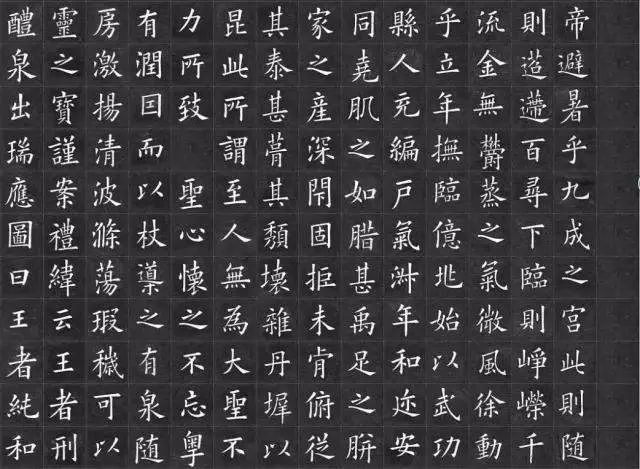 帝避暑乎九成之宮此則随
則迢遰百尋下臨則崢嶸千
流金無欝蒸之氣微風徐動
乎立年撫臨億兆始以武功
縣人充編戶氣淑年和迩安
同堯肌之如腊甚禹足之胼
家之産深閇固拒未肯俯從
其泰甚葺其頹壞雜丹墀以
昆此所謂至人無為大聖不
力所致 聖心懷之不忘粵
有潤囯而以杖導之有泉随
房激揚清波滌蕩瑕穢可以
靈之寳謹案禮緯云王者刑
醴泉出瑞應圖曰王者純和